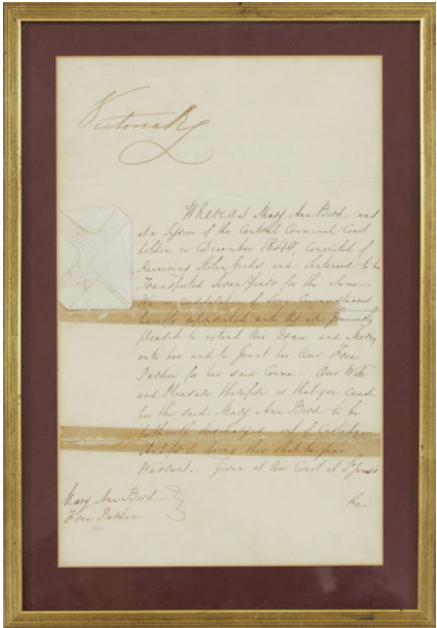 Victoria R
Whereas Mary Ann Bird was
at a Session of the Central Criminal Court
holden in December 1840, Convicted of
Receiving Stolen Goods and Sentenced to be
Transported Seven Years for the Same.
We in consideration of some Circumstances
humbly represented unto Us are Graciously
pleased to extend Our Grace and Mercy
unto her and to Grant her Our Free
Pardon for her said Crime. Our Will
and Pleasure therefore is that you cause
her the said Mary Ann Bird to be
forthwith discharged out of Custody
And for so doing this shall be your
Warrant. Given at Our Court at St James
Mary Ann Bird
Free Pardon